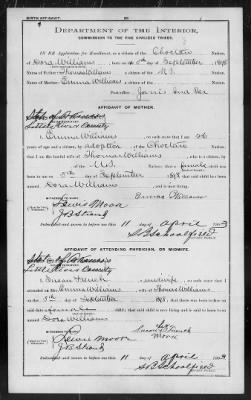 BIRTH AFFIDAVIT.
DEPARTMENT OF THE INTERIOR,
COMMISSION TO THE FIVE CIVILIZED TRIBES.
IN RE Application for Enrollment, as a citizen of the Choctaw Nation,
of Dora Williams, born on the 5th day of September, 1898
Name of Father: Thomas Williams a citizen of the U.S. Nation.
Name of Mother: Emma Williams a citizen of the Choctaw Nation.
Postoffice
AFFIDAVIT OF MOTHER.
State of Arkansas
Little River County
I, Emma Williams, on oath state that I am 26
years of age and a citizen by adoption, of the Choctaw
Nation; that I am the lawful wife of Thomas Williams, who is a citizen,
of the U.S. Nation; that a female child was
born to me on 5th day of September, 1898, that said child has been named
Dora Williams, and is now living.
Emma Williams
Lewis Moon
Subscribed and sworn to before me this 11 day of April
AFFIDAVIT OF ATTENDING PHYSICIAN, OR MIDWIFE.
State of Arkansas
Little River County
I, Susan French, a midwife, on oath state that I
attended on Mrs. Emma Williams, wife of Thomas Williams on the
5th day of September, 1898, that there was born to her on said
date a female child; that said child is now living and is said to have been named
Dora Williams
Susan French
mark
Lewis Moon
Subscribed and sworn to before me this 11 day of April